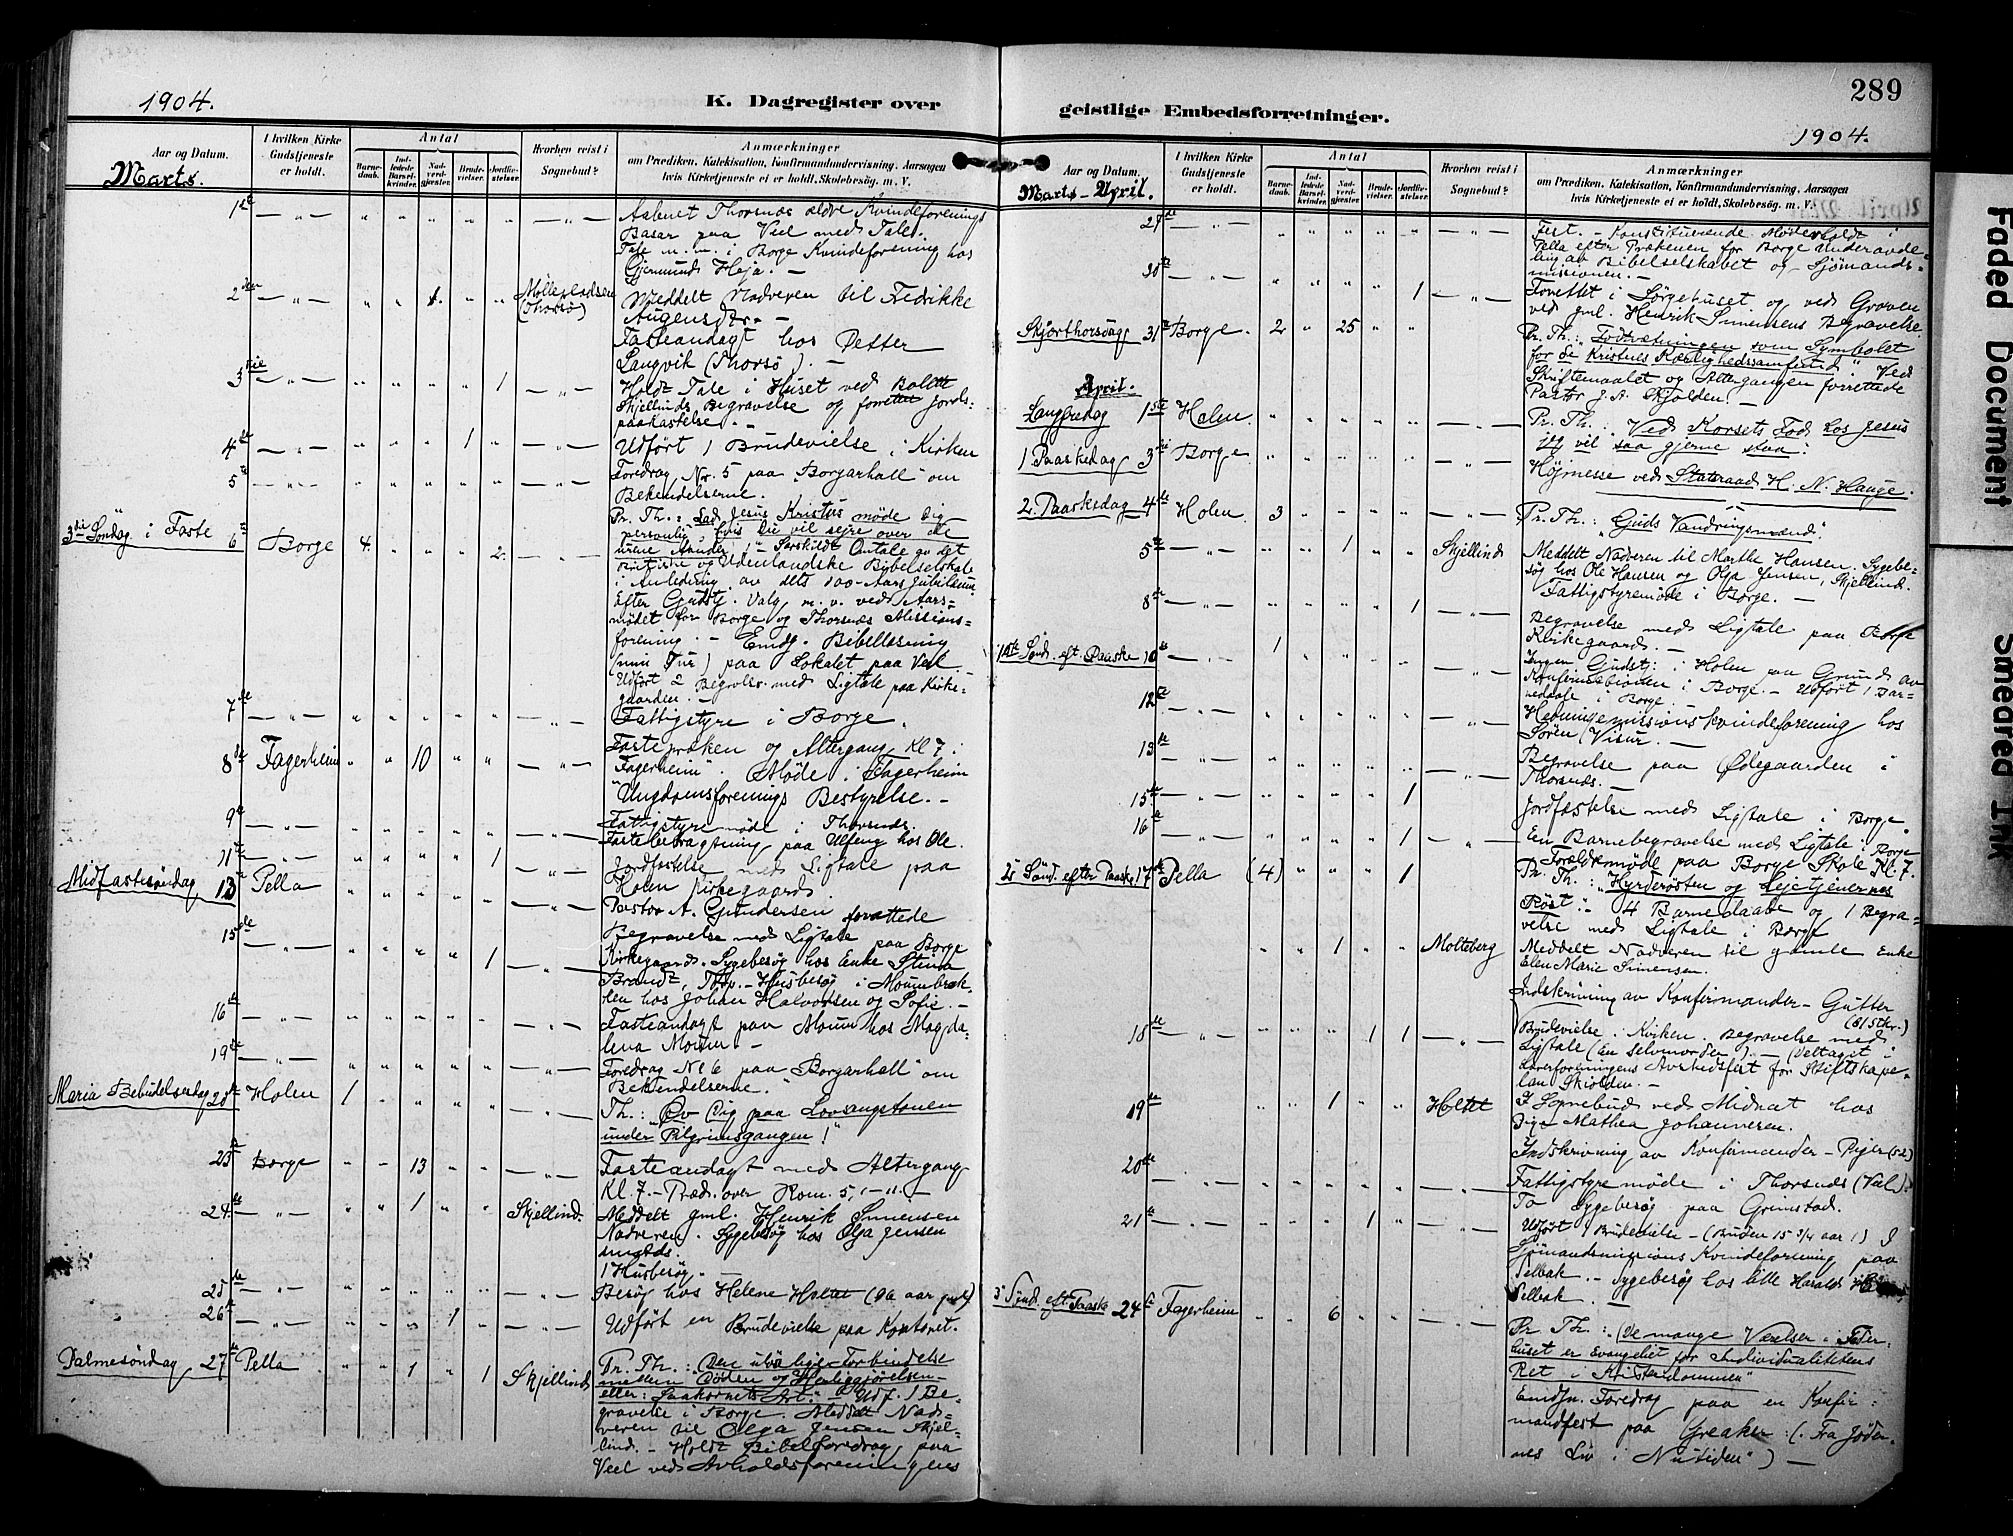 1904.
K. Dagregister over
Aar og Datum.
I hvilken Kirke
Gudstjeneste
er holdt.
Antal
Barne-
daab.
Ind-
ledede
Barsel-
kvinder.
Nad-
verd-
gjæster.
Brude-
vielser.
Jordfæ-
stelser.
Hvorhen reist i
Sognebud?
Anmærkninger
om Prædiken, Katekisation, Konfirmandundervisning, Aarsagen
hvis Kirketjeneste ei er holdt, Skolebesøg, m. V.
Marts.
1ste Aabnet Thorsnæs ældre Kvindeforenings
Basar paa Viel med Tale.
Tale m. m. i Borge Kvindeforening hos
Gjermunds Heja. —
2den 1. Møllepladsen
(Thorsø) Meddelt Nadveren til Fredrikke
Augensdtr. —
Fasteandagt hos Petter
Langvik (Thorsø). —
3die 1 Holdt Tale i Huset ved Bolette
Skjellinds Begravelse og forrettet Jords-
paakastelse. —
4de 1 Udført 1 Brudevielse i Kirken
5te Foredrag Nr. 5 paa "Borgarhall" om
Bekendelserne.
3die Søndag i Faste 6te Borge 4. 2. Pr. Th.: Lad Jesus Kristus møde dig
personlig hvis Du vil sejre over de
urene Aander!" Særskildt Omtale av det
Britiske og Udenlandske Bibelselskab
i Anledning av dets 100-Aars Jubilæum
Efter Gudstj. Valg m. v. ved Aars-
mødet for Borge og Thorsnæs Missions-
forening. — Emdg. Bibellæsning
(min Tur) paa Lokalet paa Viel
Udført 2 Begravelser med Ligtale paa Kirke-
gaarden. —
7de Fattigstyre i Borge.
8de Fagerheim 10 Fastepræken og Altergang Kl 7 i
"Fagerheim". Møde i "Fagerheim
Ungdomsforenings Bestyrelse. —
9de Fattigstyremøde i Thorsnæs.
Fastebetragtning paa Ulfeng hos Ole.
11te 1 Jordfæstelse med Ligtale paa
Holen Kirkegaard
Midfastesøndag 13de Pella Pastor A. Gundersen forrettede
15de 1 Begravelse med Ligtale paa Borge
Kirkegaard. Sygebesøg hos Enke Stina
Brandt, Husbesøg i Moumbæk-
ken hos Johan Halvorsen og Sofie. —
16de Fasteandagt paa Moum hos Magda-
lena Moum. —
19de Foredrag No 6 paa "Borgarhall" om
Bekendelserne.
Maria Bebudelsesdag 20de Holen 1 Th.: "Øv Dig paa Lovsangstonen
under Pilgrimsgangen!"
23de Borge 13 Fasteandagt med Altergang
Kl. 7. — Præd. over Rom. 5, 1-11. —
24de 1 Skjellind. Meddelt gml. Henrik Simensen
Nadveren. Sygebesøg hos Olga Jensen
smstds.
1 Husbesøg. —
25de Besøg hos Helene Holtet (96 aar gml).
26de 1 Udført en Brudevielse paa Kontoret.
Palmesøndag 27de Pella 1 1 Skjellind Pr. Th.: Den uløselige Forbindelse
mellem Døden og Herliggjørelsen
eller: Saakornets Art." — Udf. 1 Be-
gravelse i Borge. Meddelt Nad-
veren til Olga Jensen Skjel-
lind. — Holdt Bibelforedrag paa
Viel ved Avholdsforeningens
289
geistlige Embedsforretninger.
1904.
Aar og Datum.
I hvilken Kirke
Gudstjeneste
er holdt.
Antal
Barne-
daab.
Ind-
ledede
Barsel-
kvinder.
Nad-
verd-
gjæster.
Brude-
vielser.
Jordfæ-
stelser.
Hvorhen reist i
Sognebud?
Anmærkninger
om Prædiken, Katekisation, Konfirmandundervisning, Aarsagen
hvis Kirketjeneste ei er holdt, Skolebesøg, m. V.
Marts — April.
27de Fest. — Konstituerende Møde holdt i
Pella efter Prækenen for Borge Underavde-
ling av Bibelselskabet og Sjømands-
missionen. —
30te 1 Forrettet i Sørgehuset og ved Graven
ved gml. Henrik Simensens Begravelse
Skjærthorsdag 31te Borge. 2 25 Pr. Th.: Fodvætningen som Symbolet
for de Kristnes Kærlighedssamfund". Ved
Skriftemaalet og Altergangen forrettede
Pastor J. A. Skjolden.
April.
Langfredag 1ste Holen Pr. Th.: "Ved Korsets Fod hos Jesus
jeg vil saa gjerne staa".
1 Paaskedag 3die Borge Højmesse ved Statsraad H. N. Hauge.
2. Paaskedag 4de Holen. 3 Pr. Th.: "Guds Vandringsmænd".
5te 1 Skjellind Meddelt Nadveren til Marthe Hansen. Sygebe-
søg hos Ole Hansen og Olga Jensen, Skjellind.
Fattigstyremøde i Borge. —
8de 1 Begravelse med Ligtale paa Borge
Kirkegaard. —
1ste Sønd. eft. Paaske 10de 1 Ingen Gudstj. i Holen paa Grund av
Konfirmationen i Borge. — Udført 1 Bar-
nedaab i Borge.
12te Hedningemissions Kvindeforening hos
Søren Visur. —
13de Begravelse paa Ødegaarden i
Thorsnæs. —
15de 1 Jordfæstelse med Ligtale i Borge.
16de 1 En Barnebegravelse med Ligtale i Borge
Forældremøde paa Borge Skole Kl. 7.
2den Sønd. efter Paaske 17de Pella (4) 1 Pr. Th.: "Hyrderøsten og Lejetjenernes
Røst". — 4 Barnedaabe og 1 Begra-
velse med Ligtale i Borge
1 Molteberg Meddelt Nadveren til gamle Enke
Elen Marie Simensen.
Indskrivning av Konfirmander — Gutter
(61 Stkr.)
18de 1 1 Brudevielse i Kirken. Begravelse med
Ligtale (En Selvmorder!). — (Deltaget i
Lærerforeningens Avskedsfest for Stiftskape-
lan Skjolden. —
19de 1 Holtet I Sognebud ved Midnat hos
Pige Mathea Johannesen.
Indskrivning av Konfirmander — Piger (52)
20de Fattigstyremøde i Thorsnæs (Viel).
To Sygebesøg paa Grimstad.
21de 1 Udført 1 Brudevielse — (Bruden 15 3/4 aar!) I
Sjømandsmissions Kvindeforening paa
Selbak. — Sygebesøg hos lille Harald
Selbak. —
3die Sønd. eft. Paaske 24de Fagerheim 6 Pr. Th.: "De mange Værelser i Fader-
huset er Evangeliet for Individualitetens
Ret i Kristendommen"
Emdg. Foredrag paa en Konfir-
mandfest paa Greaker: (. Fra Jøder-
nes Liv i Nutiden") —
Faded Document
Smeared Ink